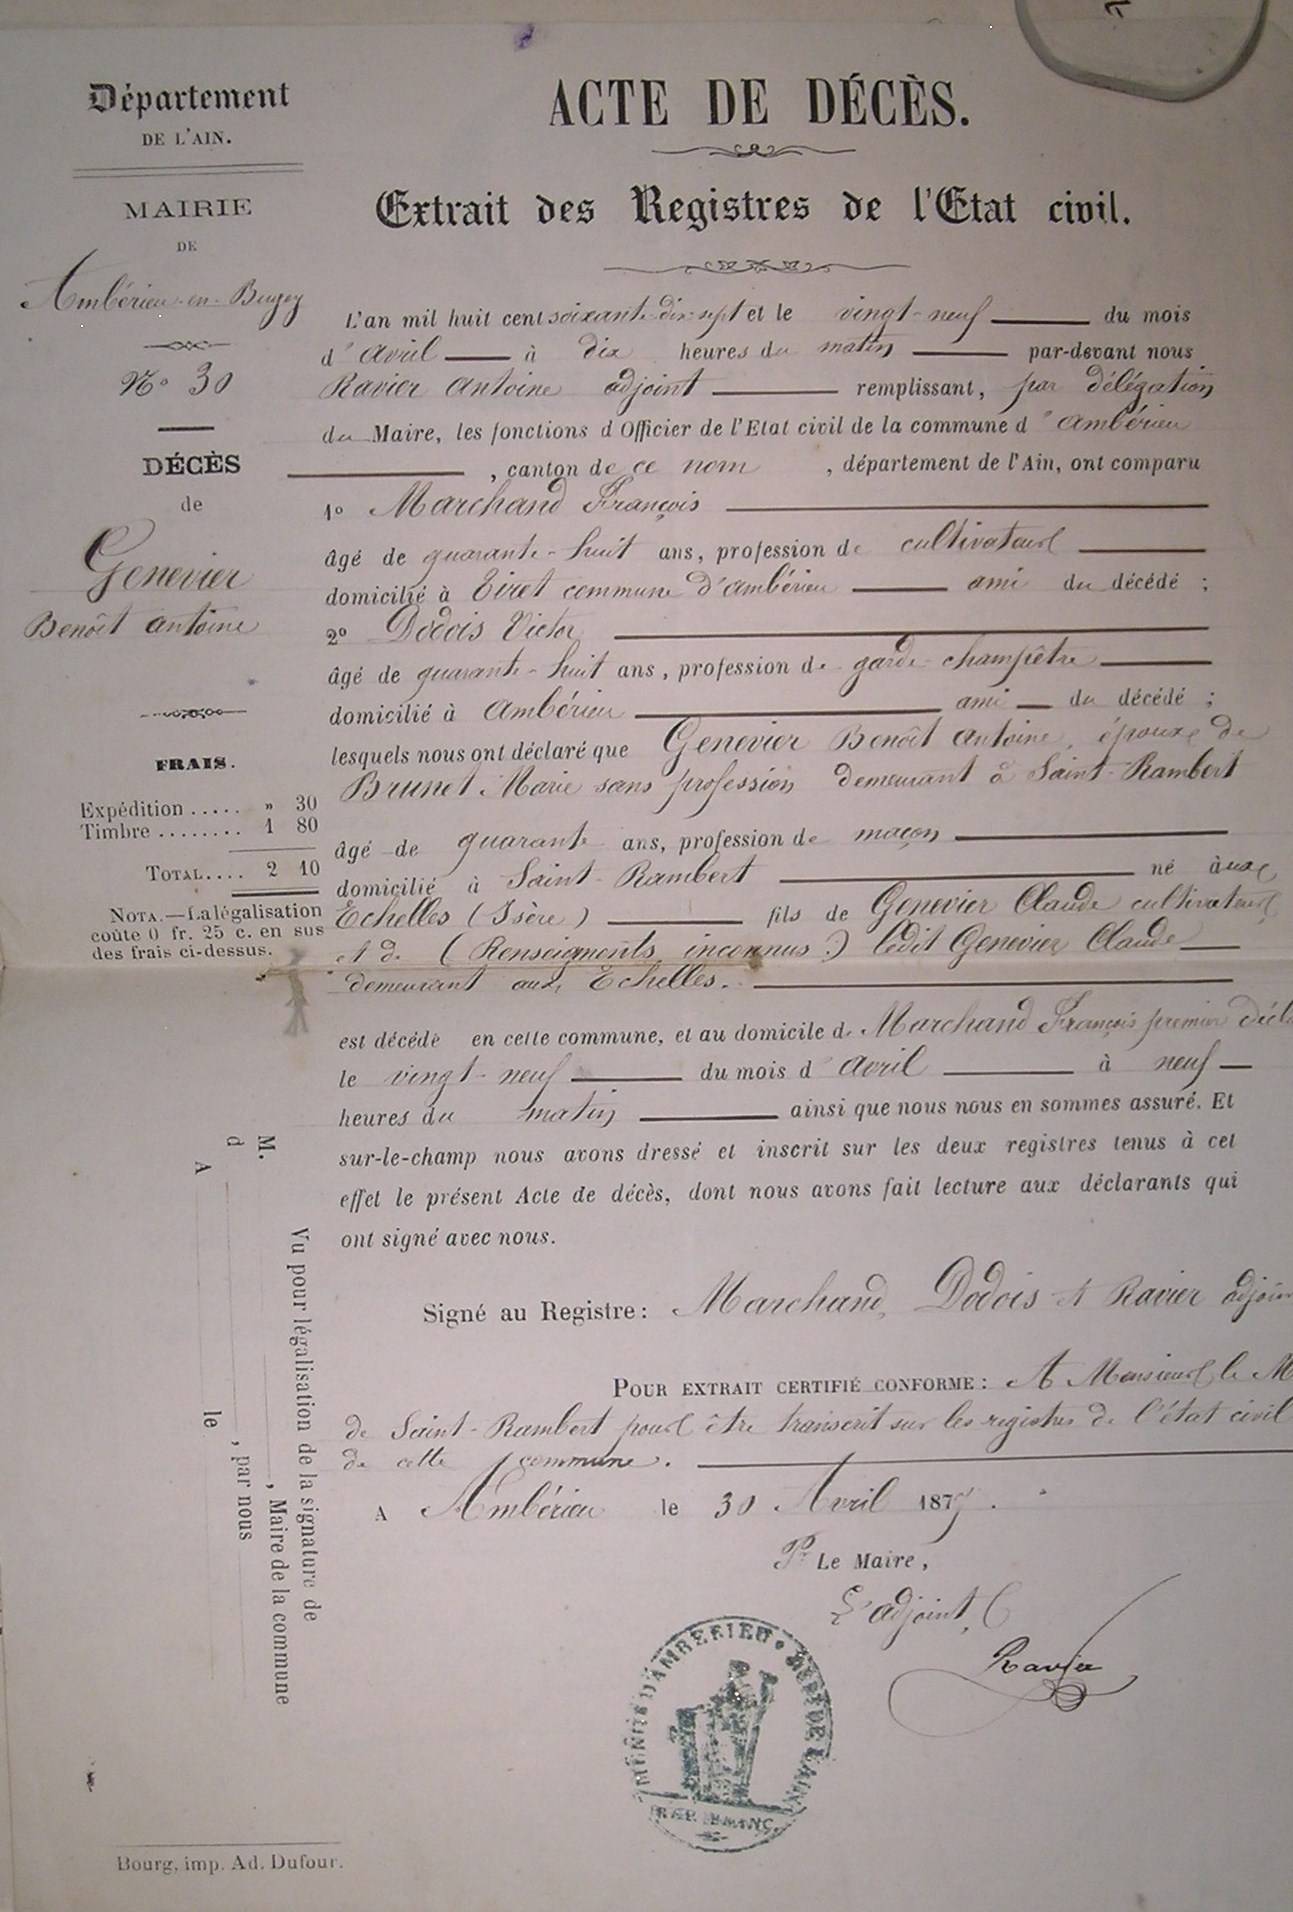 Département
DE L'AIN.
MAIRIE
DE
Ambérieu-en-Bugey
N° 30
DÉCÈS
de
Genevier
Benoît antoine
FRAIS.
Expédition ..... » 30
Timbre ........ 1 80
TOTAL.... 2 10
NOTA.—La légalisation
coûte 0 fr. 25 c. en sus
des frais ci-dessus.
ACTE DE DÉCÈS.
Extrait des Registres de l'Etat civil.
L'an mil huit cent soixante-dix-sept et le vingt-neuf du mois
d'avril à dix heures du matin par-devant nous
Ravier Antoine adjoint remplissant, par délégation
du Maire, les fonctions d'Officier de l'Etat civil de la commune d'ambérieu
, canton de ce nom , département de l'Ain, ont comparu
1° Marchand François
âgé de quarante-huit ans, profession de cultivateur
domicilié à Tiret commune d'ambérieu ami du décédé ;
2° Dodois Victor
âgé de quarante-huit ans, profession de garde-champêtre
domicilié à ambérieu ami du décédé ;
lesquels nous ont déclaré que Genevier Benoît antoine, époux de
Brunet Marie sans profession demeurant à Saint-Rambert
âgé de quarante ans, profession de maçon
domicilié à Saint-Rambert né aux
Echelles (Isère) fils de Genevier Claude cultivateur
et de (Renseignements inconnus) ledit Genevier Claude
demeurant aux Echelles.
est décédé en cette commune, et au domicile de Marchand François premier décla
le vingt-neuf du mois d'avril à neuf
heures du matin ainsi que nous nous en sommes assuré. Et
sur-le-champ nous avons dressé et inscrit sur les deux registres tenus à cet
effet le présent Acte de décès, dont nous avons fait lecture aux déclarants qui
ont signé avec nous.
Signé au Registre: Marchand, Dodois et Ravier adjoin
POUR EXTRAIT CERTIFIÉ CONFORME: A Monsieur le M
de Saint-Rambert pour être transcrit sur les registres de l'état civil
de cette commune.
A Ambérieu le 30 Avril 1877.
Pr Le Maire,
L'adjoint,
Ravier
D'AMBÉRIEU • DEPT DE L'AIN
RÉP. FRANÇ.
Vu pour légalisation de la signature de
M. , Maire de la commune
d , par nous
A le
Bourg, imp. Ad. Dufour.